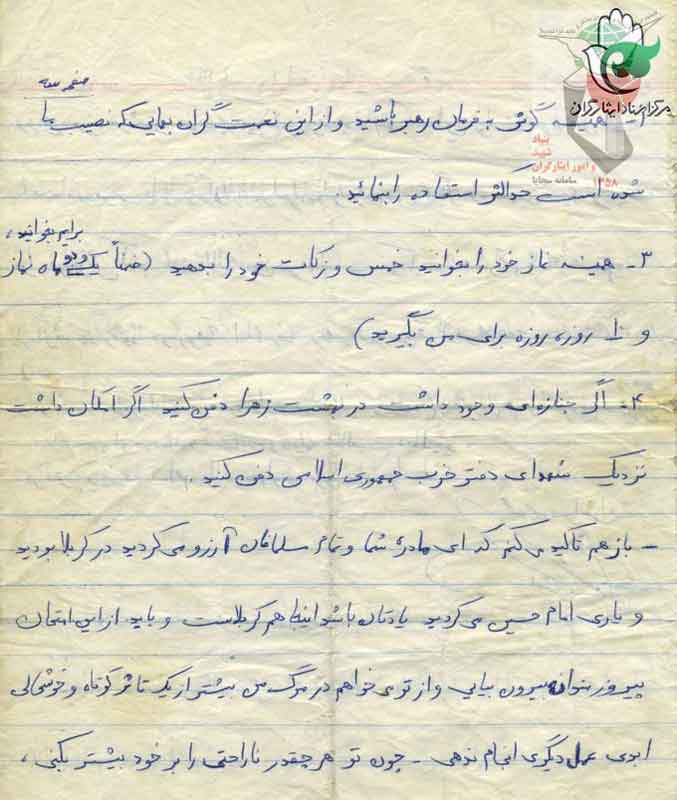 صفحه سه
مرکز اسناد ایثارگران
بنیاد
شهید
و امور ایثارگران
سامانه سجایا ۱۳۵۸
همیشه گوش به فرمان رهبر باشید و از این نعمت گران بهایی که نصیب ما
شده است حداکثر استفاده را بنمائید.
برایم بخوانید،
۳- همیشه نماز خود را بخوانید خمس و زکات خود را بدهید (ضمناً دو ماه نماز
و ۱۰ روزه روزه برای من بگیرید)
۴- اگر جنازه‌ای وجود داشت در بهشت زهرا دفن کنید اگر امکان داشت
نزدیک شهدای دفتر حزب جمهوری اسلامی دفن کنید.
- باز هم تاکید می‌کنم که ای مادر شما و تمام مسلمانان آرزو می‌کردید در کربلا بودید
و یاری امام حسین می‌کردید یادتان باشد اینجا هم کربلاست و باید از این امتحان
پیروز بتوان بیرون بیایی و از تو می‌خواهم در مرگ من بیشتر از یک تاثر کوتاه و خوشحالی
ابدی عمل دیگری انجام ندهی - چون تو هر چقدر ناراحتی را بر خود بیشتر بکنی،